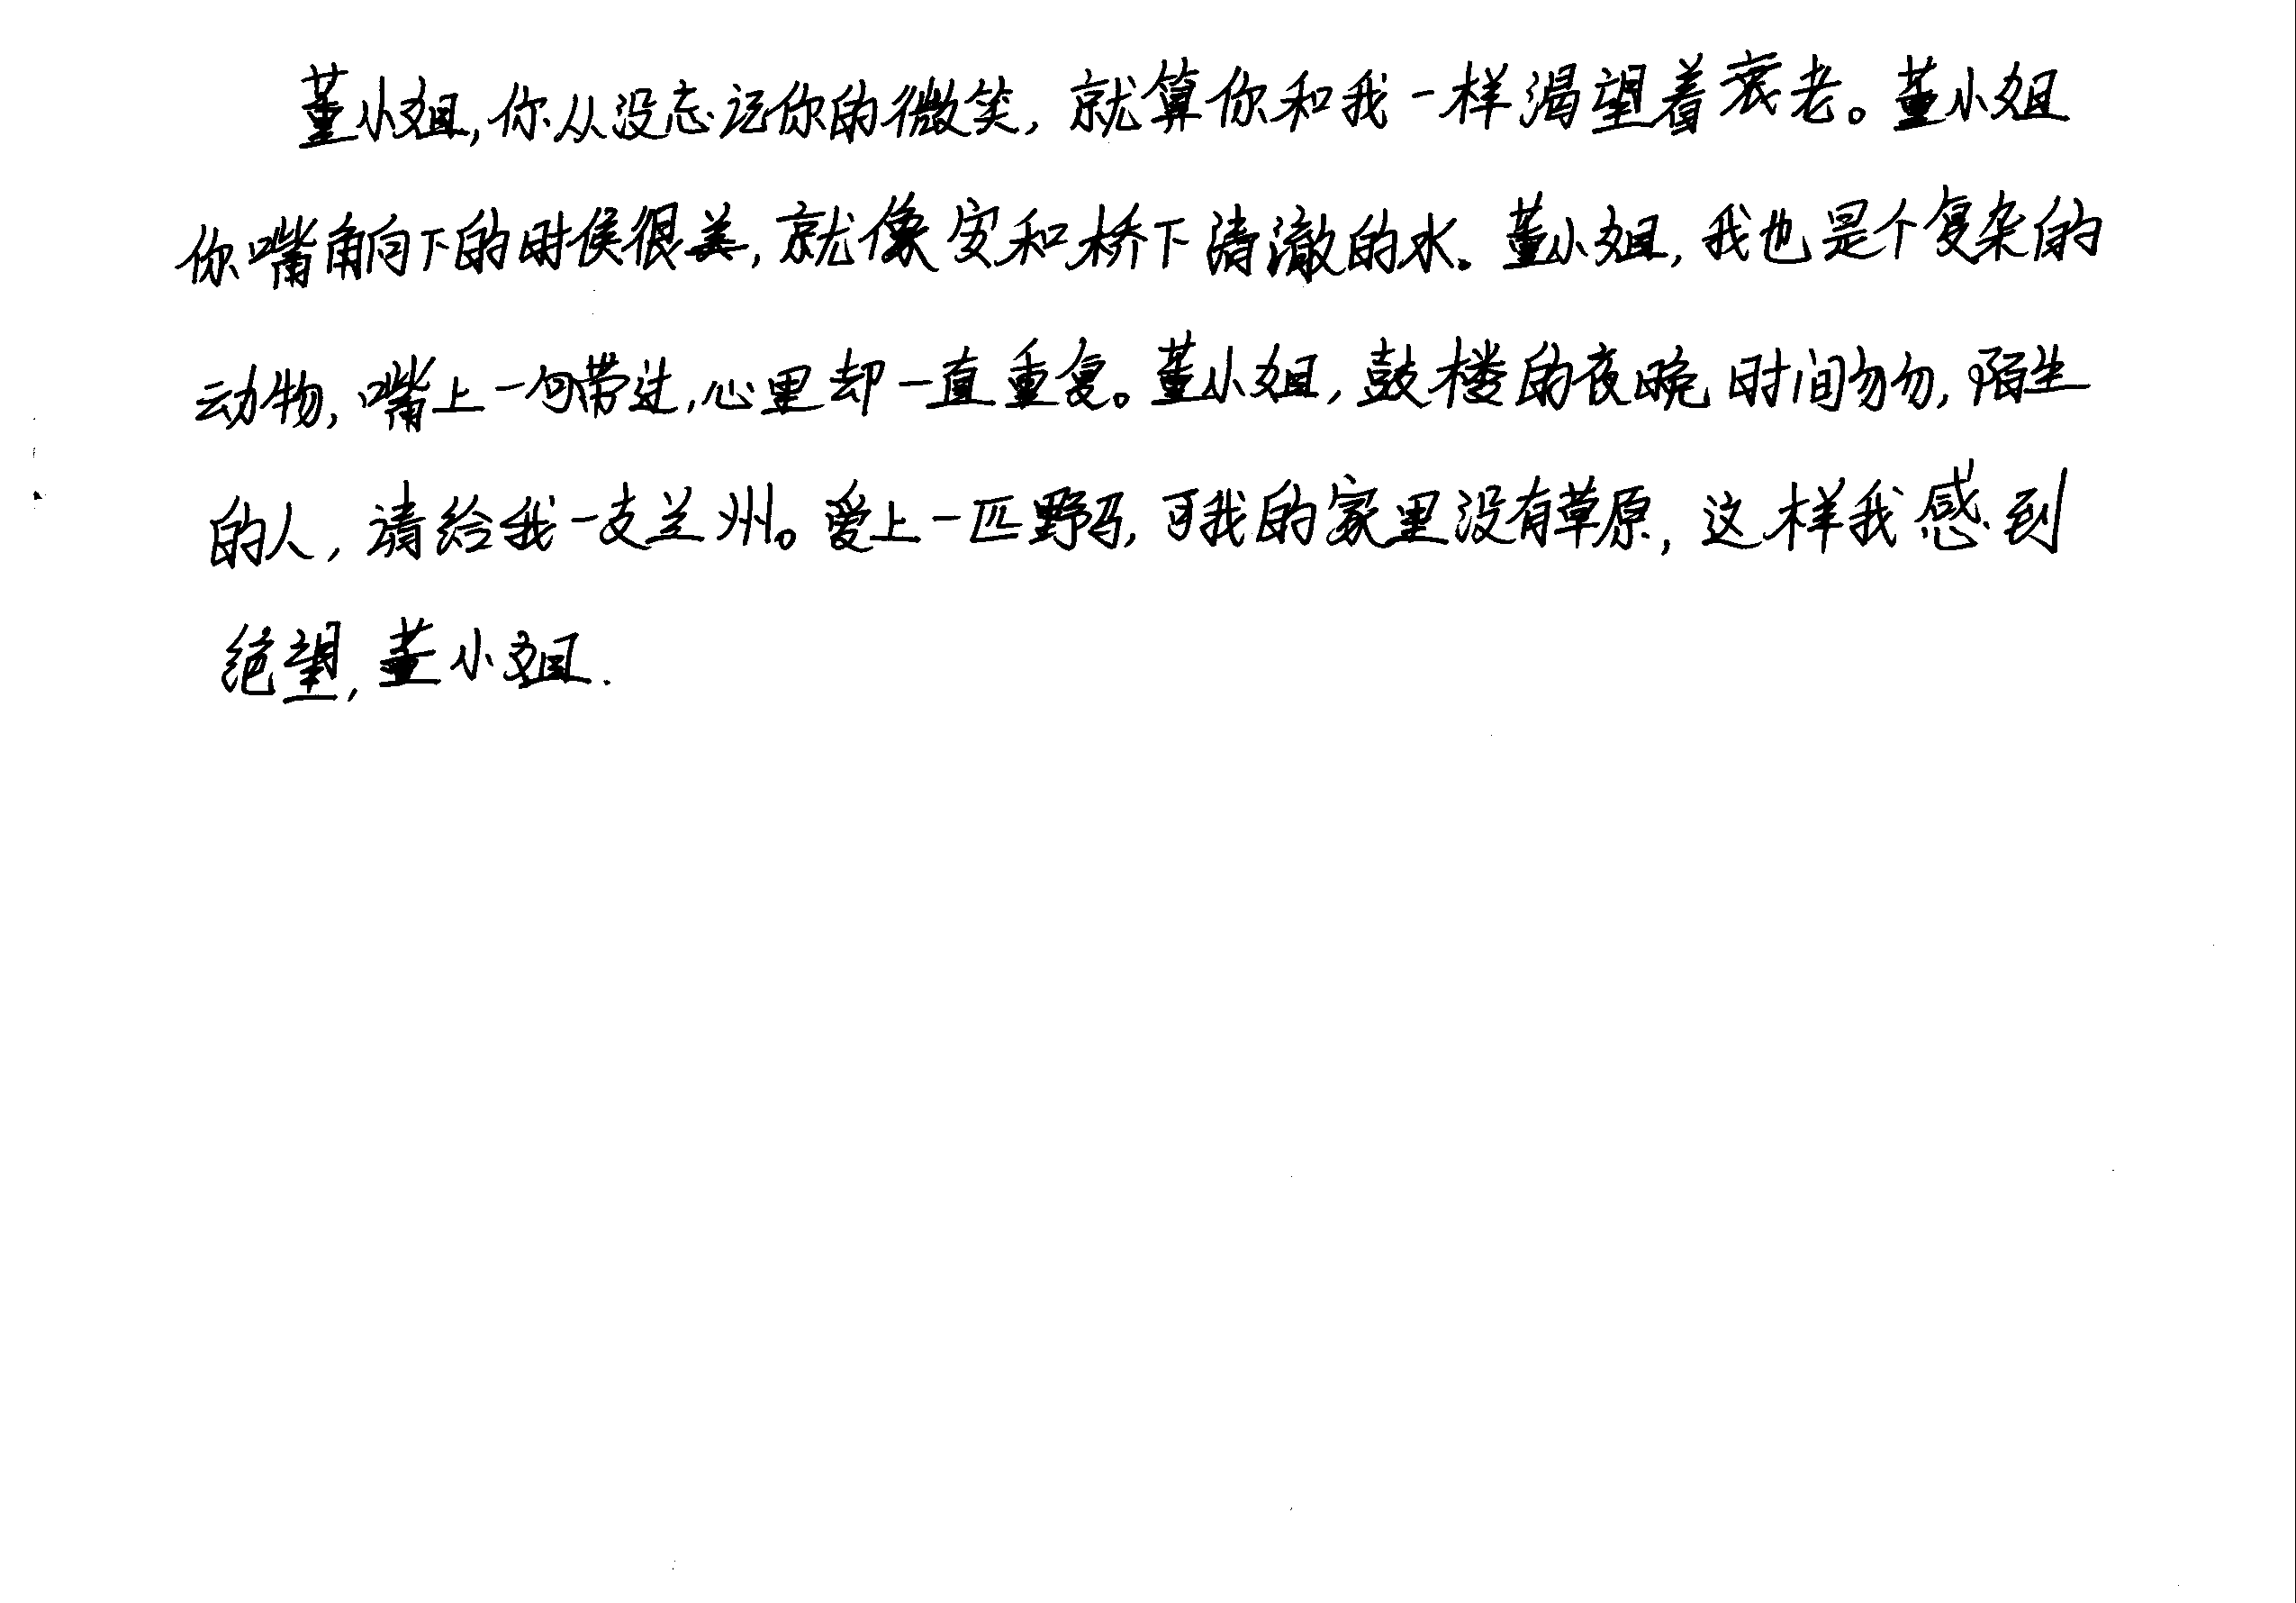 董小姐,你从没忘记你的微笑,就算你和我一样渴望着衰老。董小姐
你嘴角向下的时候很美,就像安和桥下清澈的水。董小姐,我也是个复杂的
动物,嘴上一句带过,心里却一直重复。董小姐,鼓楼的夜晚时间匆匆,陌生
的人,请给我一支兰州。爱上一匹野马,可我的家里没有草原,这样我感到
绝望,董小姐.